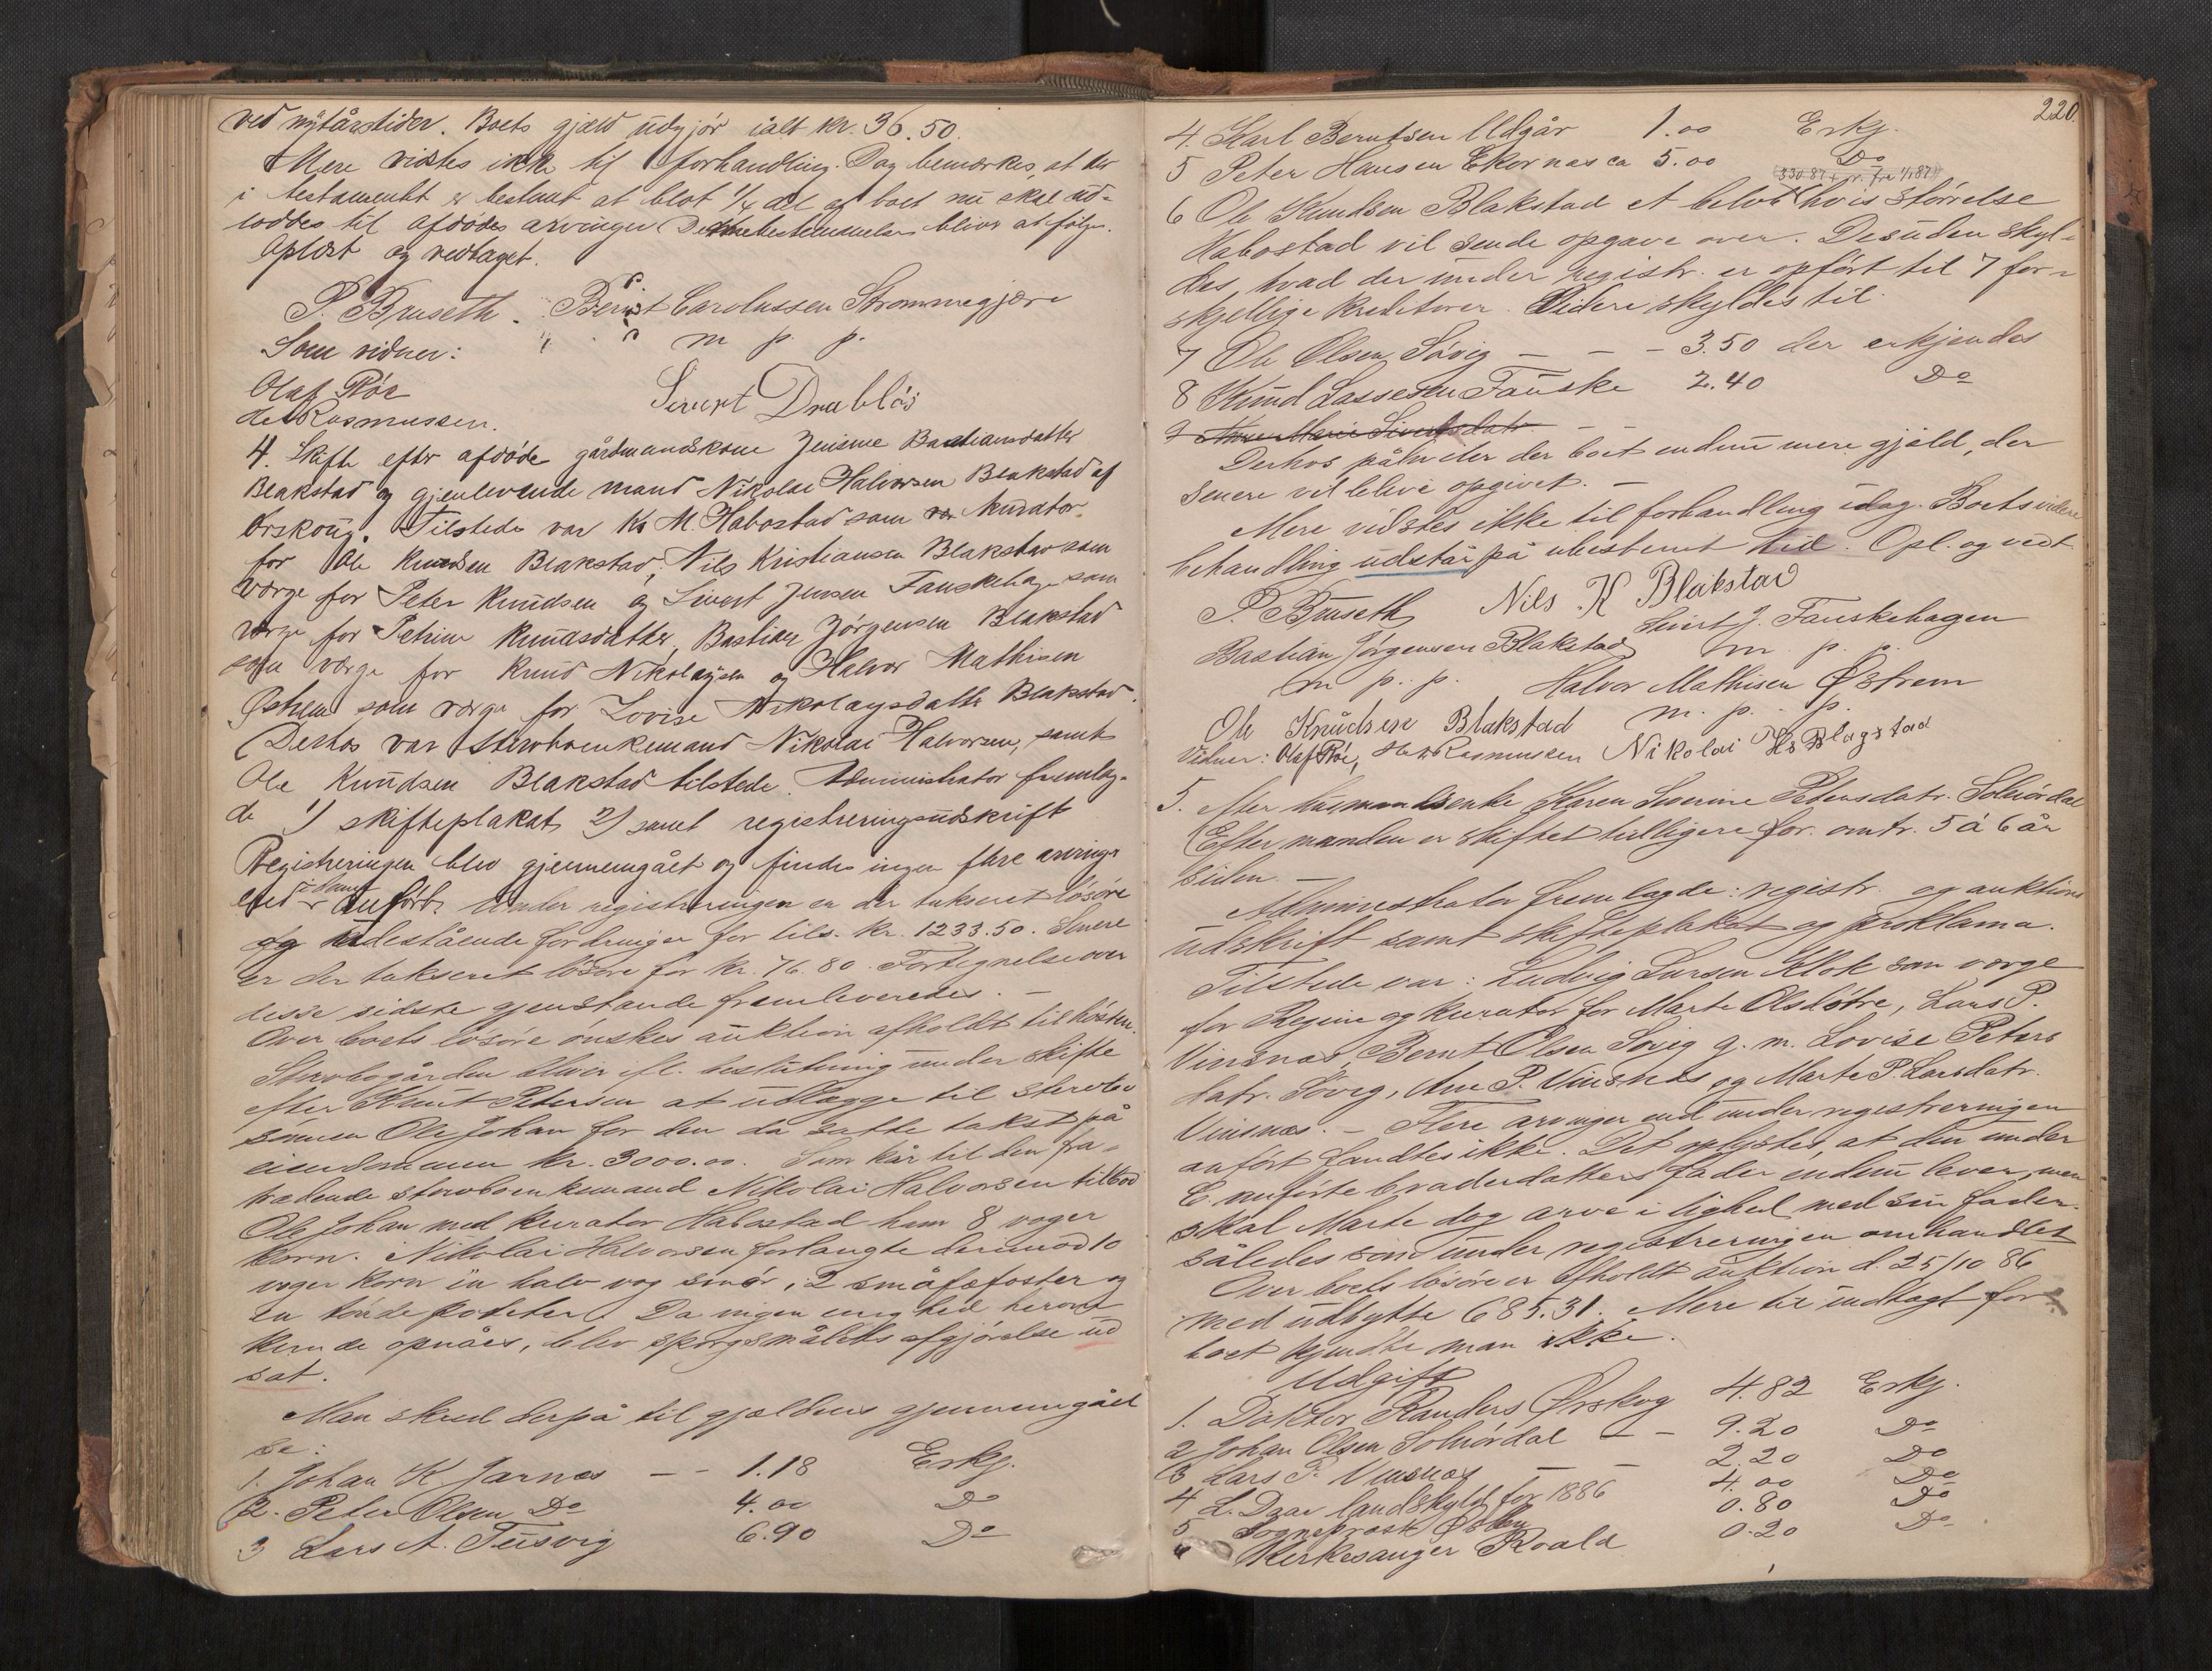 ved nytårstider. Boets gjæld udgjør ialt kr. 36.50.
Mere vidstes ikke til forhandling. Dog bemærkes, at der
i testamentet er bestemt at blot 1/4 del af boet nu skal ud-
loddes til afdødes arvinger. Denne bestemmelse bliver at følge.
Oplæst og vedtaget.
P. Bruseth. Bernt Carolussen Strømmegjære
m. p. p.
Som vidner:
Olaf Røe
Rasmussen.
Sivert Drabløs
4. Skifte efter afdøde gårdmandskone Jensine Bastiansdatter
Blakstad og gjenlevende mand Nikolai Halvorsen Blakstad af
Ørskoug. Tilstede var K. M. Habostad som kurator
for Ole Knudsen Blakstad, Nils Kristiansen Blakstad som
værge for Peter Knudsen og Sivert Jensen Fauskehagen som
værge for Petrine Knudsdatter, Bastian Jørgensen Blakstad
som værge for Knud Nikolaysen og Halvor Mathisen
Østrem som værge for Lovise Nikolaysdatter Blakstad.
Derhos var sterboenkemand Nikolai Halvorsen, samt
Ole Knudsen Blakstad tilstede. Administrator fremlag-
de 1) skifteplakat 2) samt registreringsudskrift
Registreringen blev gjennemgået og findes ingen flere arvinger
end i samme anført. Under registreringen er der takseret løsøre
og udestående fordringer for tils. kr. 1233.50. Senere
er der takseret løsøre for kr. 76.80. Fortegnelse over
disse sidste gjenstande fremleveredes. -
Over boets løsøre ønskes auktion afholdt til høsten.
Sterbogården bliver efl. beslutning under skifte
efter Knut Petersen at udlægge til sterbo-
sønnen Ole Johan for den da satte takst på
eiendommen kr. 3000.00. Som kår til den fra-
trædende sterboenkemand Nikolai Halvorsen tilbød
Ole Johan med kurator Habostad ham 8 voger
korn. Nikolai Halvorsen forlangte derimod 10
voger korn en halv vog smør, 2 småfæfoster og
en tønde poteter. Da ingen enighed herom
kunde opnåes, blev spørgsmålets afgjørelse ud
sat.
Man skred derpå til gjældens gjennemgåel
se:
1. Johan K. Jarnes - - 1.18 Erkj.
2. Peter Olsen Do 4.00 Do
3 Lars A. Tusvig 6.90 Do
220.
4. Karl Berntsen Udgår 1.00 Erkj.
5 Peter Hansen Ekornæs ca 5.00 Do
6 Ole Knudsen Blakstad et beløb hvis størrelse
Habostad vil sende opgave over. Desuden skyl-
des, hvad der under registr. er opført til 7 for-
skjellige kreditorer. Videre skyldes til
7 Ole Olsen Søvig - - - 3.50 der erkjendes
8 Knud Lassesen Fauske 2.40 Do
9 Anne Marie Sivertsdatr - -
Derhos påhviler der boet endnu mere gjæld, der
senere vil blive opgivet. -
Mere vidstes ikke til forhandling idag. Boets videre
behandling udstår på ubestemt tid. Opl. og vedt.
P. Bruseth Nils K Blakstad
Sivert J. Fauskehagen
Bastian Jørgensen Blakstad m. p. p.
m. p. p. Halvor Mathisen Østrem
Ole Knudsen Blakstad m. p. p.
Vidner: Olaf Røe, Rasmussen Nikolai Hs Blagstad
5. Efter husmandsenke Karen Severine Petersdatr. Solnørdal
(Efter manden er skiftet tidligere for omtr. 5 á 6 år
siden. -
Administrator fremlagde: registr. og auktions
udskrift samt skifteplakat og proklama.
Tilstede var: Ludvig Larsen Klok som værge
for Regine og kurator for Marte Olsdøtre, Lars P.
Vinsnæs, Bernt Olsen Søvig g. m. Lovise Peters
datr. Søvig, Ane P. Vinsnæs og Marte P. Larsdatr.
Vinsnæs. - Flere arvinger end under registreringen
anført fandtes ikke. Det oplystes, at den under
C anførte broderdatters fader endnu lever, men
skal Marte dog arve i lighed med sin fader
således som under registreringen omhandlet
Over boets løsøre er afholdt auktion d. 25/10 86
med udbytte 685.31. Mere til indtægt for
boet kjendte man ikke.
Udgift
1. Doktor Randers Ørskog 4.82 Erkj.
2 Johan Olsen Solnørdal - - 9.20 Do
3 Lars P. Vinsnæs - - 2.20 Do
4 L. Daae landskyld for 1886 4.00 Do
5 Sogneprest 0.80 Do
6 Kirkesanger Roald 0.20 Do